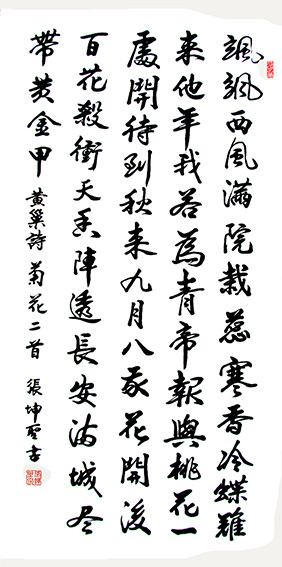 飒飒西風滿院栽蕊寒香冷蝶難
来他年我若為青帝報與桃花一
處開待到秋来九月八我花開後
百花殺衝天香陣透長安满城尽
帶黄金甲 黄巢詩菊花二首 張坤